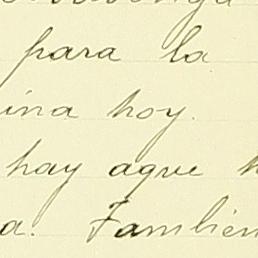 para la
ina hoy.
hay aque
a. Tambien